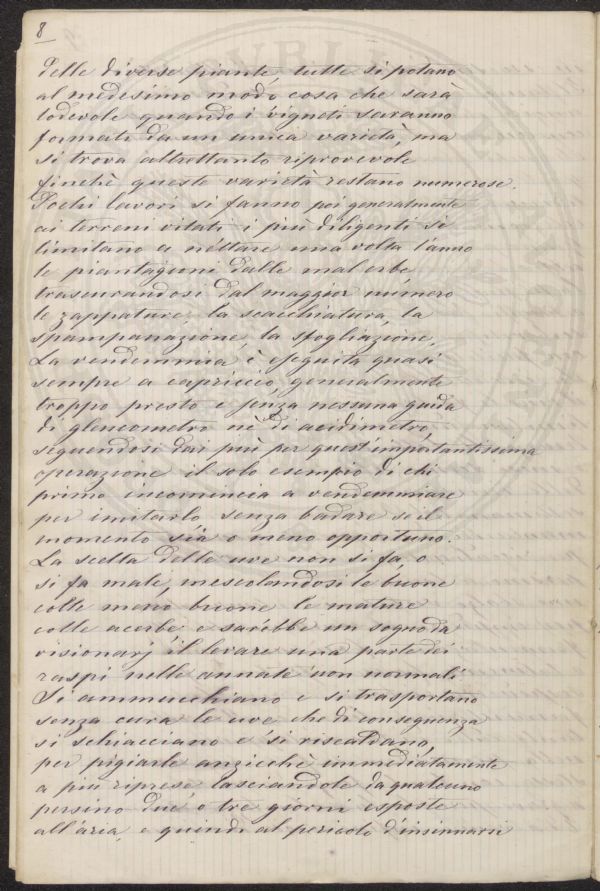 8
delle diverse piante, tutte si potano
al medesimo modo cosa che sarà
lodevole quando i vigneti saranno
formati da un unica varietà, ma
si trova altrettanto riprovevole
finchè queste varietà restano numerose.
Pochi lavori si fanno poi generalmente
ai terreni vitati i più diligenti si
limitano a nettare una volta l'anno
le piantagioni dalle mal erbe
trascurandosi dal maggior numero
le zappature, la scacchiatura, la
spampanazione, la sfogliazione.
La vendemmia è eseguita quasi
sempre a capriccio, generalmente
troppo presto e senza nessuna guida
di gleucometro nè di acidimetro,
seguendosi dai più per quest'importantissima
operazione il solo esempio di chi
primo incomincia a vendemmiare
per imitarlo senza badare se il
momento sia o meno opportuno.
La scelta delle uve non si fa, o
si fa male, mescolandosi le buone
colle meno buone le mature
colle acerbe e sarebbe un sogno da
visionarj il levare una parte dei
raspi nelle annate non normali
Si ammucchiano e si trasportano
senza cura le uve che di conseguenza
si schiacciano e si riscaldano,
per pigiarle anzicchè immediatamente
a più riprese lasciandole da qualcuno
persino due o tre giorni esposte
all'aria, e quindi al pericolo d'